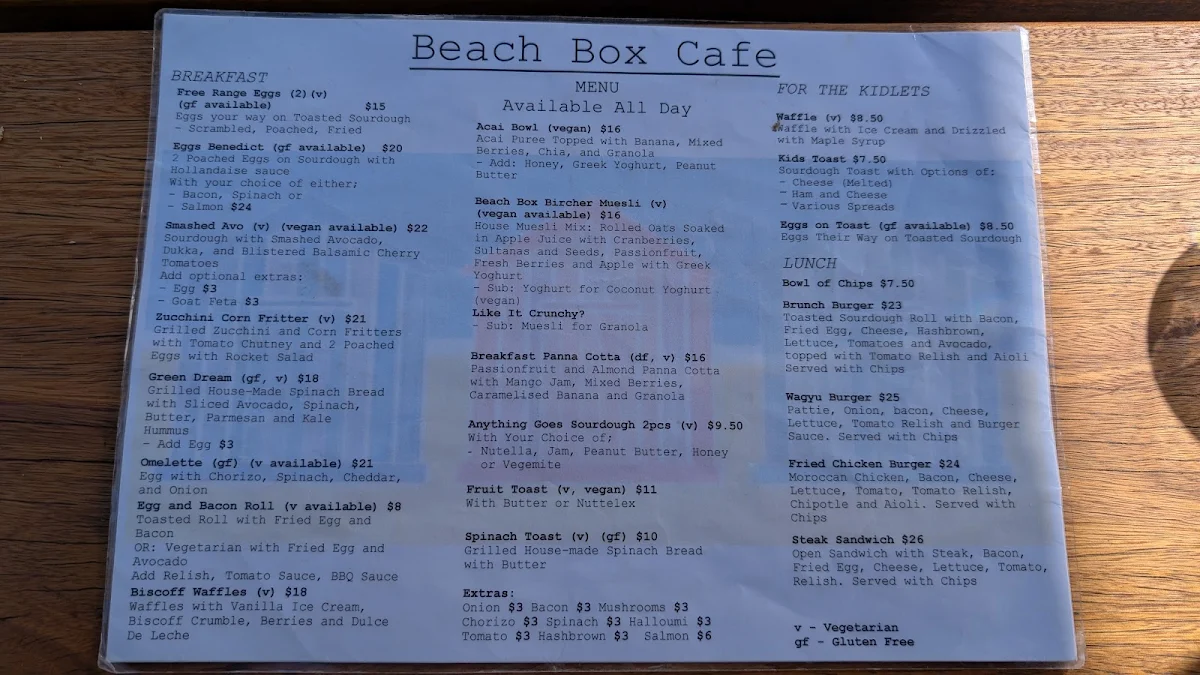 Beach Box Cafe
BREAKFAST
Free Range Eggs (2)(v)
(gf available) $15
Eggs your way on Toasted Sourdough
- Scrambled, Poached, Fried
Eggs Benedict (gf available) $20
2 Poached Eggs on Sourdough with
Hollandaise sauce
With your choice of either;
- Bacon, Spinach or
- Salmon $24
Smashed Avo (v) (vegan available) $22
Sourdough with Smashed Avocado,
Dukka, and Blistered Balsamic Cherry
Tomatoes
Add optional extras:
- Egg $3
- Goat Feta $3
Zucchini Corn Fritter (v) $21
Grilled Zucchini and Corn Fritters
with Tomato Chutney and 2 Poached
Eggs with Rocket Salad
Green Dream (gf, v) $18
Grilled House-Made Spinach Bread
with Sliced Avocado, Spinach,
Butter, Parmesan and Kale
Hummus
- Add Egg $3
Omelette (gf) (v available) $21
Egg with Chorizo, Spinach, Cheddar,
and Onion
Egg and Bacon Roll (v available) $8
Toasted Roll with Fried Egg and
Bacon
OR: Vegetarian with Fried Egg and
Avocado
Add Relish, Tomato Sauce, BBQ Sauce
Biscoff Waffles (v) $18
Waffles with Vanilla Ice Cream,
Biscoff Crumble, Berries and Dulce
De Leche
MENU
Available All Day
Acai Bowl (vegan) $16
Acai Puree Topped with Banana, Mixed
Berries, Chia, and Granola
- Add: Honey, Greek Yoghurt, Peanut
Butter
Beach Box Bircher Muesli (v)
(vegan available) $16
House Muesli Mix: Rolled Oats Soaked
in Apple Juice with Cranberries,
Sultanas and Seeds, Passionfruit,
Fresh Berries and Apple with Greek
Yoghurt
- Sub: Yoghurt for Coconut Yoghurt
(vegan)
Like It Crunchy?
- Sub: Muesli for Granola
Breakfast Panna Cotta (df, v) $16
Passionfruit and Almond Panna Cotta
with Mango Jam, Mixed Berries,
Caramelised Banana and Granola
Anything Goes Sourdough 2pcs (v) $9.50
With Your Choice of;
- Nutella, Jam, Peanut Butter, Honey
or Vegemite
Fruit Toast (v, vegan) $11
With Butter or Nuttelex
Spinach Toast (v) (gf) $10
Grilled House-made Spinach Bread
with Butter
Extras:
Onion $3 Bacon $3 Mushrooms $3
Chorizo $3 Spinach $3 Halloumi $3
Tomato $3 Hashbrown $3 Salmon $6
FOR THE KIDLETS
Waffle (v) $8.50
Waffle with Ice Cream and Drizzled
with Maple Syrup
Kids Toast $7.50
Sourdough Toast with Options of:
- Cheese (Melted)
- Ham and Cheese
- Various Spreads
Eggs on Toast (gf available) $8.50
Eggs Their Way on Toasted Sourdough
LUNCH
Bowl of Chips $7.50
Brunch Burger $23
Toasted Sourdough Roll with Bacon,
Fried Egg, Cheese, Hashbrown,
Lettuce, Tomatoes and Avocado,
topped with Tomato Relish and Aioli
Served with Chips
Wagyu Burger $25
Pattie, Onion, bacon, Cheese,
Lettuce, Tomato Relish and Burger
Sauce. Served with Chips
Fried Chicken Burger $24
Moroccan Chicken, Bacon, Cheese,
Lettuce, Tomato, Tomato Relish,
Chipotle and Aioli. Served with
Chips
Steak Sandwich $26
Open Sandwich with Steak, Bacon,
Fried Egg, Cheese, Lettuce, Tomato,
Relish. Served with Chips
v - Vegetarian
gf - Gluten Free